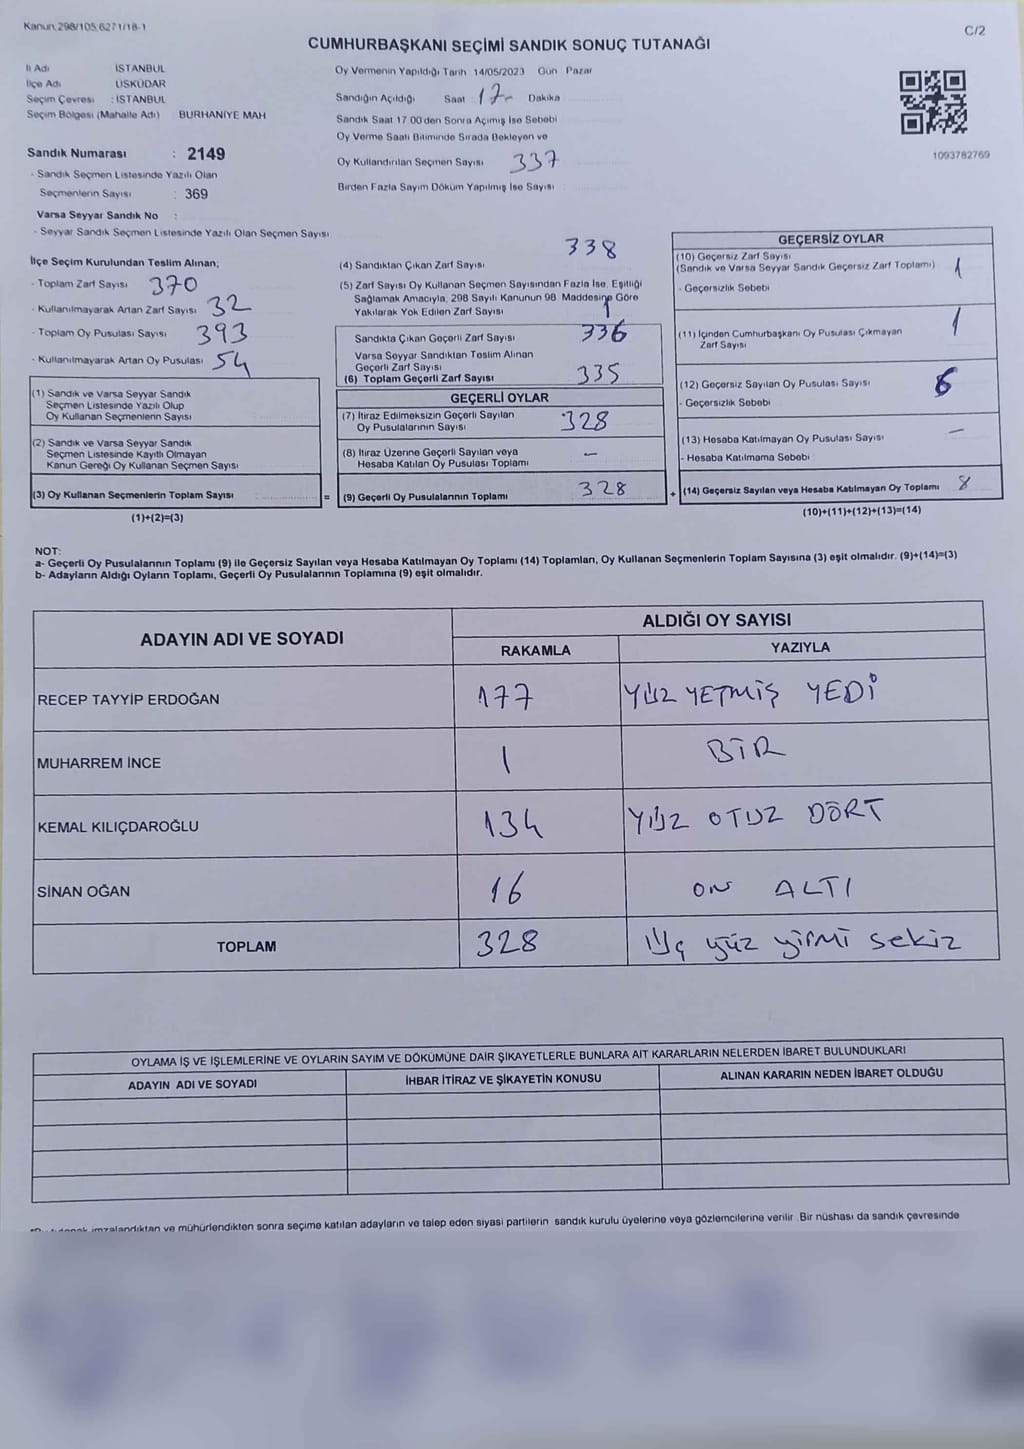 Kanun:298/105;6271/18-1
C/2
CUMHURBAŞKANI SEÇİMİ SANDIK SONUÇ TUTANAĞI
İl Adı İSTANBUL
İlçe Adı ÜSKÜDAR
Seçim Çevresi : İSTANBUL
Seçim Bölgesi (Mahalle Adı) BURHANİYE MAH
Sandık Numarası : 2149
- Sandık Seçmen Listesinde Yazılı Olan
Seçmenlerin Sayısı : 369
Varsa Seyyar Sandık No :
- Seyyar Sandık Seçmen Listesinde Yazılı Olan Seçmen Sayısı
Oy Vermenin Yapıldığı Tarih 14/05/2023 Gün Pazar
Sandığın Açıldığı Saat 17- Dakika
Sandık Saat 17:00'den Sonra Açılmış İse Sebebi
Oy Verme Saati Bitiminde Sırada Bekleyen ve
Oy Kullandırılan Seçmen Sayısı 337
Birden Fazla Sayım Döküm Yapılmış İse Sayısı :
1093782769
İlçe Seçim Kurulundan Teslim Alınan;
- Toplam Zarf Sayısı 370
- Kullanılmayarak Artan Zarf Sayısı 32
- Toplam Oy Pusulası Sayısı 393
- Kullanılmayarak Artan Oy Pusulası 54
(1) Sandık ve Varsa Seyyar Sandık
Seçmen Listesinde Yazılı Olup
Oy Kullanan Seçmenlerin Sayısı
(2) Sandık ve Varsa Seyyar Sandık
Seçmen Listesinde Kayıtlı Olmayan
Kanun Gereği Oy Kullanan Seçmen Sayısı
(3) Oy Kullanan Seçmenlerin Toplam Sayısı =
(1)+(2)=(3)
(4) Sandıktan Çıkan Zarf Sayısı 338
(5) Zarf Sayısı Oy Kullanan Seçmen Sayısından Fazla İse, Eşitliği
Sağlamak Amacıyla, 298 Sayılı Kanunun 98. Maddesine Göre
Yakılarak Yok Edilen Zarf Sayısı 1
Sandıkta Çıkan Geçerli Zarf Sayısı 336
Varsa Seyyar Sandıktan Teslim Alınan
Geçerli Zarf Sayısı
(6) Toplam Geçerli Zarf Sayısı 335
GEÇERLİ OYLAR
(7) İtiraz Edilmeksizin Geçerli Sayılan
Oy Pusulalarının Sayısı 328
(8) İtiraz Üzerine Geçerli Sayılan veya
Hesaba Katılan Oy Pusulası Toplamı -
(9) Geçerli Oy Pusulalarının Toplamı 328 +
GEÇERSİZ OYLAR
(10) Geçersiz Zarf Sayısı
(Sandık ve Varsa Seyyar Sandık Geçersiz Zarf Toplamı) 1
- Geçersizlik Sebebi
(11) İçinden Cumhurbaşkanı Oy Pusulası Çıkmayan
Zarf Sayısı 1
(12) Geçersiz Sayılan Oy Pusulası Sayısı 6
- Geçersizlik Sebebi
(13) Hesaba Katılmayan Oy Pusulası Sayısı -
- Hesaba Katılmama Sebebi
(14) Geçersiz Sayılan veya Hesaba Katılmayan Oy Toplamı 8
(10)+(11)+(12)+(13)=(14)
NOT:
a- Geçerli Oy Pusulalarının Toplamı (9) ile Geçersiz Sayılan veya Hesaba Katılmayan Oy Toplamı (14) Toplamları, Oy Kullanan Seçmenlerin Toplam Sayısına (3) eşit olmalıdır. (9)+(14)=(3)
b- Adayların Aldığı Oyların Toplamı, Geçerli Oy Pusulalarının Toplamına (9) eşit olmalıdır.
ADAYIN ADI VE SOYADI
ALDIĞI OY SAYISI
RAKAMLA YAZIYLA
RECEP TAYYİP ERDOĞAN 177 YÜZ YETMİŞ YEDİ
MUHARREM İNCE 1 BİR
KEMAL KILIÇDAROĞLU 134 YÜZ OTUZ DÖRT
SİNAN OĞAN 16 ON ALTI
TOPLAM 328 üç yüz yirmi sekiz
OYLAMA İŞ VE İŞLEMLERİNE VE OYLARIN SAYIM VE DÖKÜMÜNE DAİR ŞİKAYETLERLE BUNLARA AİT KARARLARIN NELERDEN İBARET BULUNDUKLARI
ADAYIN ADI VE SOYADI İHBAR İTİRAZ VE ŞİKAYETİN KONUSU ALINAN KARARIN NEDEN İBARET OLDUĞU
imzalandıktan ve mühürlendikten sonra seçime katılan adayların ve talep eden siyasi partilerin sandık kurulu üyelerine veya gözlemcilerine verilir. Bir nüshası da sandık çevresinde